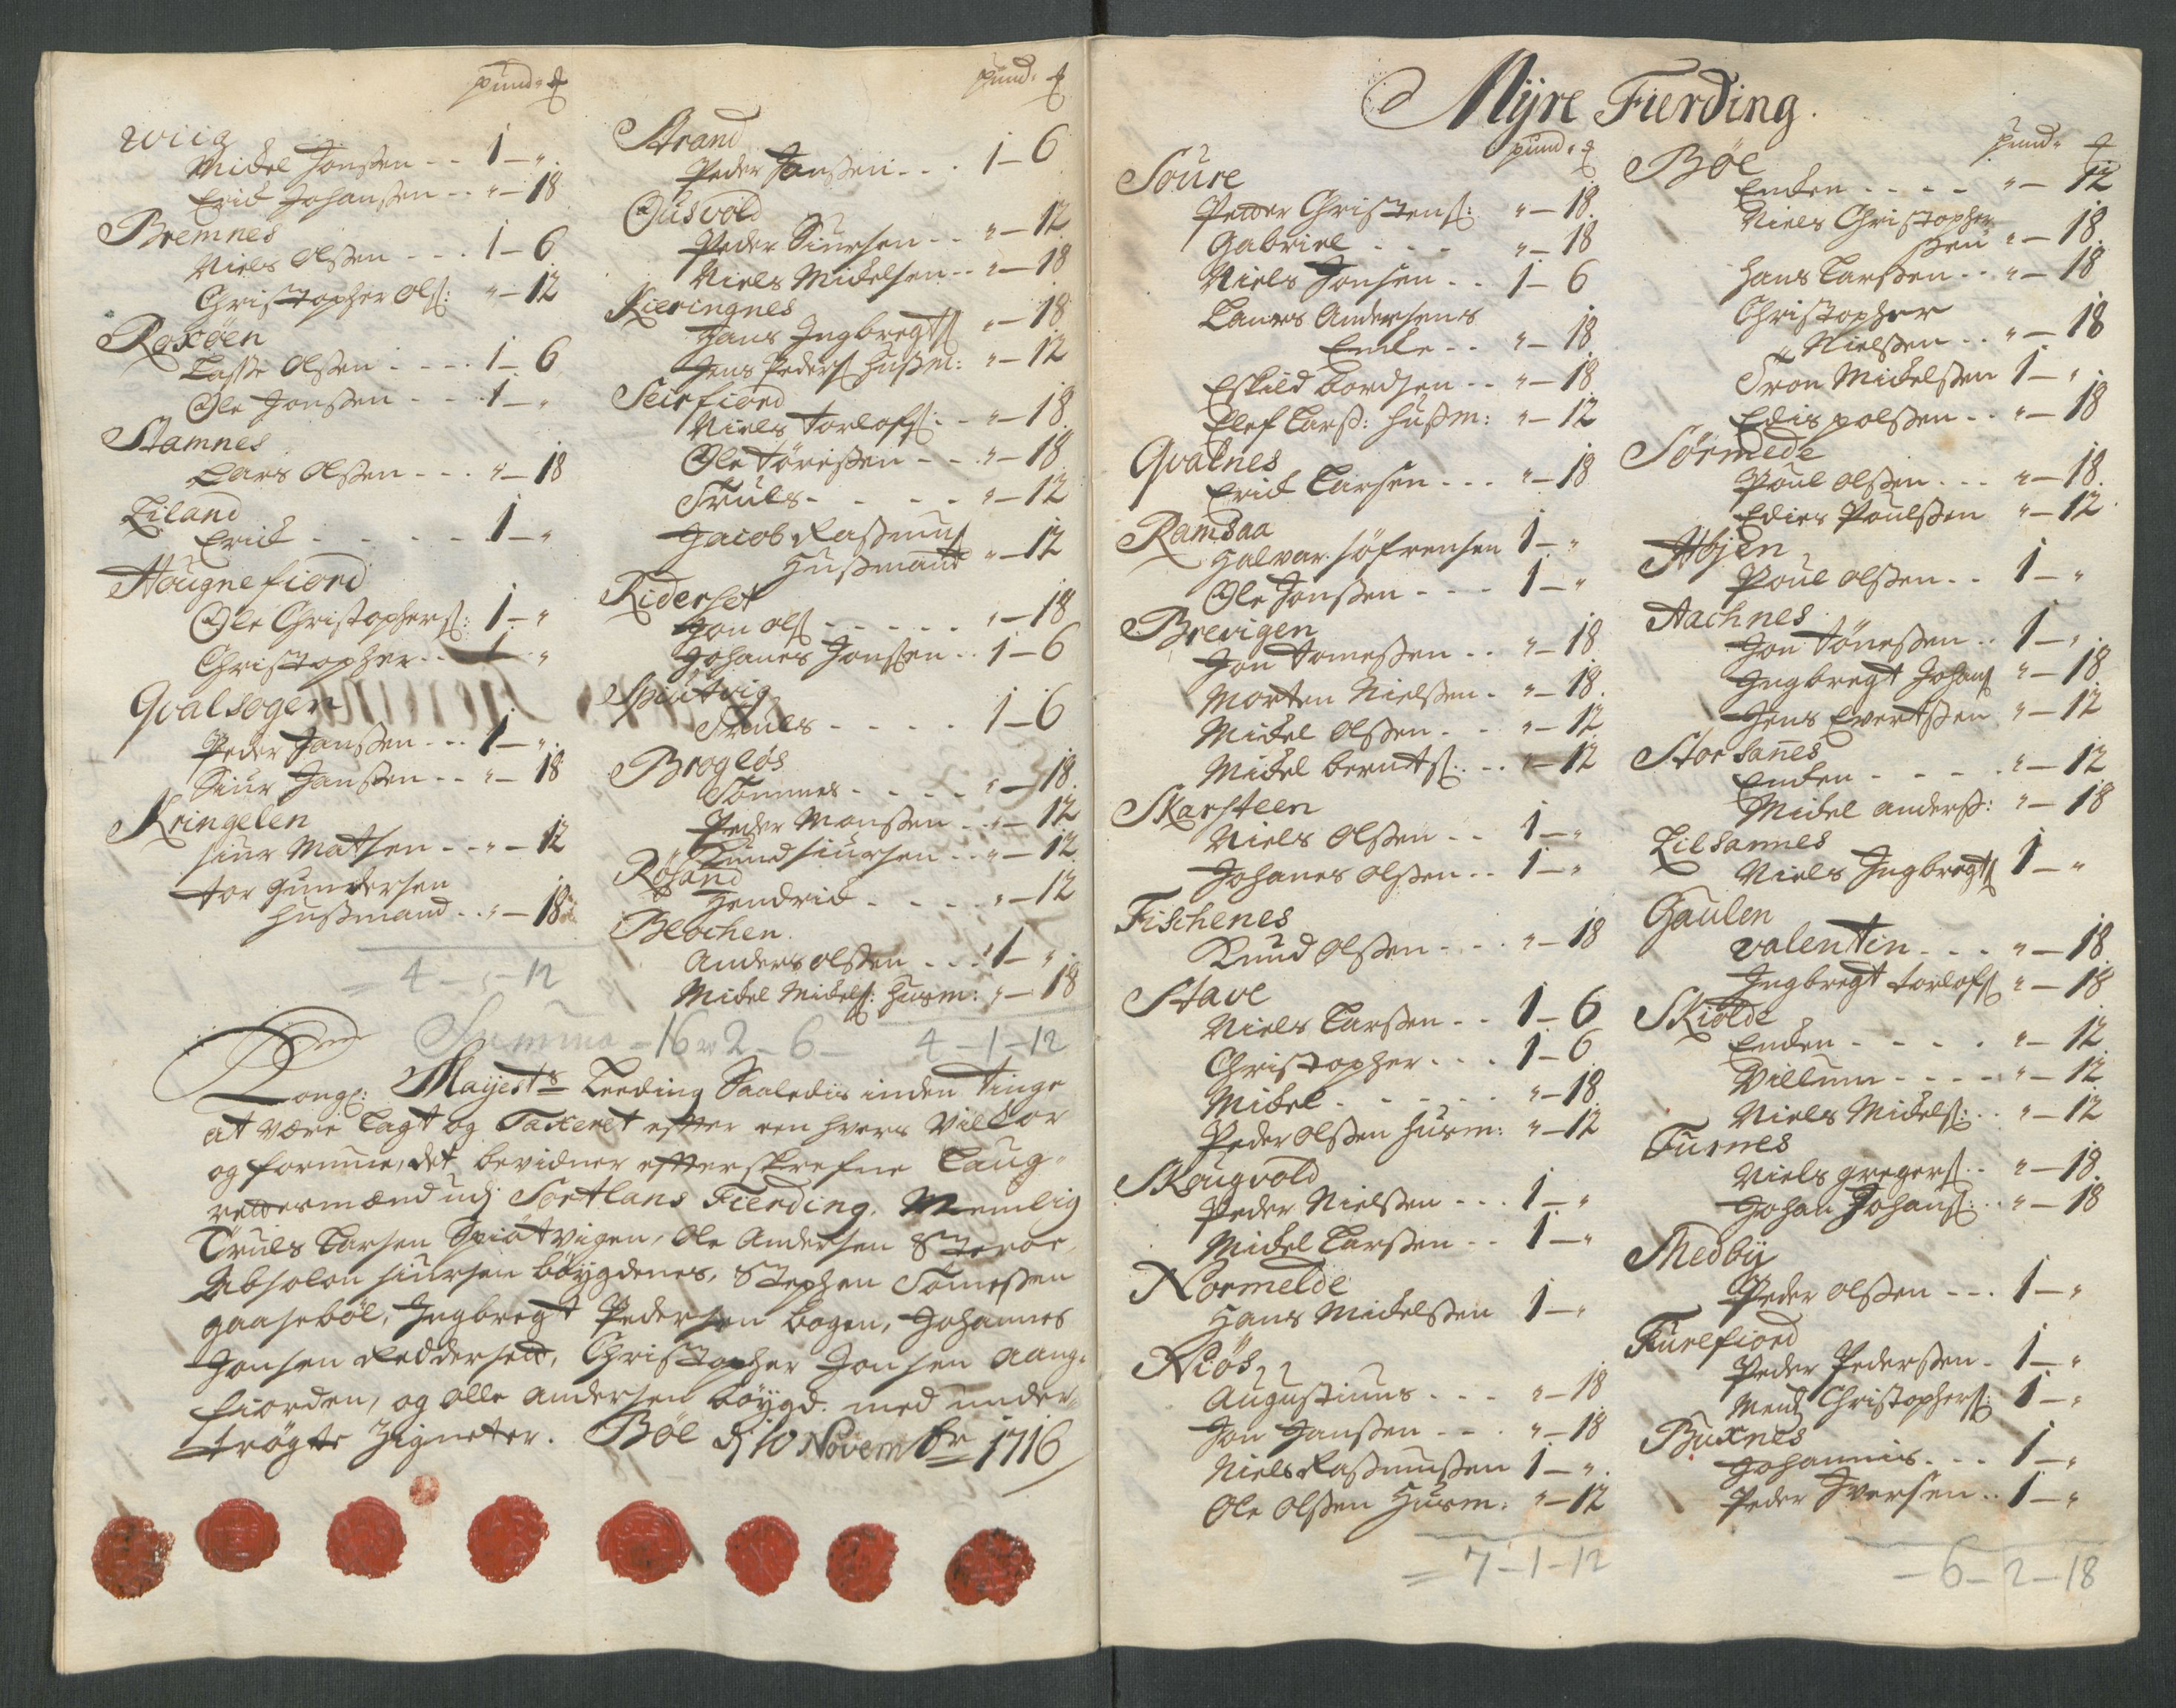 pund ℔
Wiig
Mickel Jonssen - - 1 - "
Erick Johanssen - - " - 18
Bremnes
Niels Olssen - - - 1 - 6
Christopher Ols: " - 12
Roxöen
Lasse Olssen - - - - 1 - 6
Ole Jonssen - - - 1 - "
Stamnes
Lars Olssen - - - " - 18
Liland
Erick - - - - - 1 - "
Hougnefiord
Ole Christophers: 1 - "
Christopher - - 1 - "
Qvalsogen
Peder Janssen - - - 1 - "
Siur Janssen - - " - 18
Kringelen
Siur Matsen - - " - 12
Tor Gundersen
Hussmand - - " - 18
= 4 - " - 12
pund ℔
Strand
Peder Janssen - - - 1 - 6
Gusvold
Peder Siursen - - " - 12
Niels Mickelsen - - " - 18
Kieringnes
Hans Ingbregts " - 18
Jens Peders Hussm: " - 12
Seirfiord
Niels Torlofs: - " - 18
Ole Törissen - - " - 18
Truls - - - - " - 12
Jacob Rasmus
Hussmand " - 12
Riderset
Jon Ols - - - - - " - 18
Johanes Jonssen - - 1 - 6
Spiutvig
Truls - - - - - 1 - 6
Brogløs
Tommes - - - - " - 18
Peder Monssen - - " - 12
Knud Siursen - - " - 12
Rösand
Hendrick - - - - " - 12
Blochen
Anders Olssen - - - 1 - "
Mickel Mickels: Husm: " - 18
Summa - 16 w 2 - 6 - 4 - 1 - 12
Kongl: Mayjest:s Leeding Saaledis inden Tinge
at være Lagt og Taxeret efter een hvers Vilkor
og formue, det bevidner efterskrefne Laug-
rettesmænd udj Sortlans Fierding, Nemlig
Truls Larsen Spiutvigen, Ole Andersen Steroe,
Absolon Siursen böygdenes, Stephen Tömessen
gaaseböl, Ingbregt Pedersen bogen, Johannes
Jonsen Reddersett, Christopher Jonsen Aaug-
fiorden, og Olle Andersen böygd. med under-
trögte Zigneter. Böe dj 10 Novembr 1716
Myre Fierding.
pund ℔
Soure
Petter Christens: " - 18
Gabriel - - - " - 18
Niels Jonsen - - 1 - 6
Laures Andersens
Encke - - " - 18
Eskild bordsen - - " - 18
Elef Larss: Hussm: " - 12
Qvalnes
Erick Larsen - - - " - 18
Ramsaa
Halvar Söfrensen 1 - "
Ole Jonssen - - - 1 - "
Brevigen
Jon Tomessen - - " - 18
Morten Nielssen - " - 18
Mickel Olssen - - " - 12
Mickel bernts: - - " - 12
Skarsteen
Niels Olssen - - 1 - "
Johanes Olssen - - 1 - "
Fischenes
Knud Olssen - - - " - 18
Stave
Niels Larssen - - 1 - 6
Christopher - - - 1 - 6
Mickel - - - - - " - 18
Peder Olssen Husm: " - 12
Skougvold
Peder Nielssen - - - 1 - "
Mickel Larssen - - 1 - "
Normelde
Hans Mickelssen 1 - "
Niös
Augustinus - - - " - 18
Jon Janssen - - - " - 18
Niels Rassmussen 1 - "
Ole Olssen Husm: " - 12
= 7 - 1 - 12
pund ℔
Böe
Encken - - - - " - 12
Niels Christopher
ssen " - 18
Hans Larssen - - " - 18
Christopher
Nielssen - - " - 18
Tron Mickelssen 1 - "
Edis Polssen - - " - 18
Sörmede
Poul Olssen - - - " - 18
Edies Poulssen " - 12
Abjen
Poul Olssen - - 1 - "
Aachnes
Jon Tönessen - - 1 - "
Ingbregt Johans " - 18
Jens Evertssen " - 12
Storsannes
Encken - - - - " - 12
Mickel Anderss: " - 18
Lilsannes
Niels Ingbregts 1 - "
Gaulen
Valentin - - - " - 18
Ingbregt Torlofs " - 18
Skiolde
Encken - - - - - " - 12
Villum - - - - " - 12
Niels Mickels: - - " - 12
Turnes
Niels Gregers: - " - 18
Johan Johans: - - " - 18
Medby
Peder Olssen - - - 1 - "
Furefiord
Peder Pederssen - 1 - "
Mentz Christophers: 1 - "
Buxnes
Johannis - - - 1 - "
Peder Iversen - - 1 - "
- 6 - 2 - 18